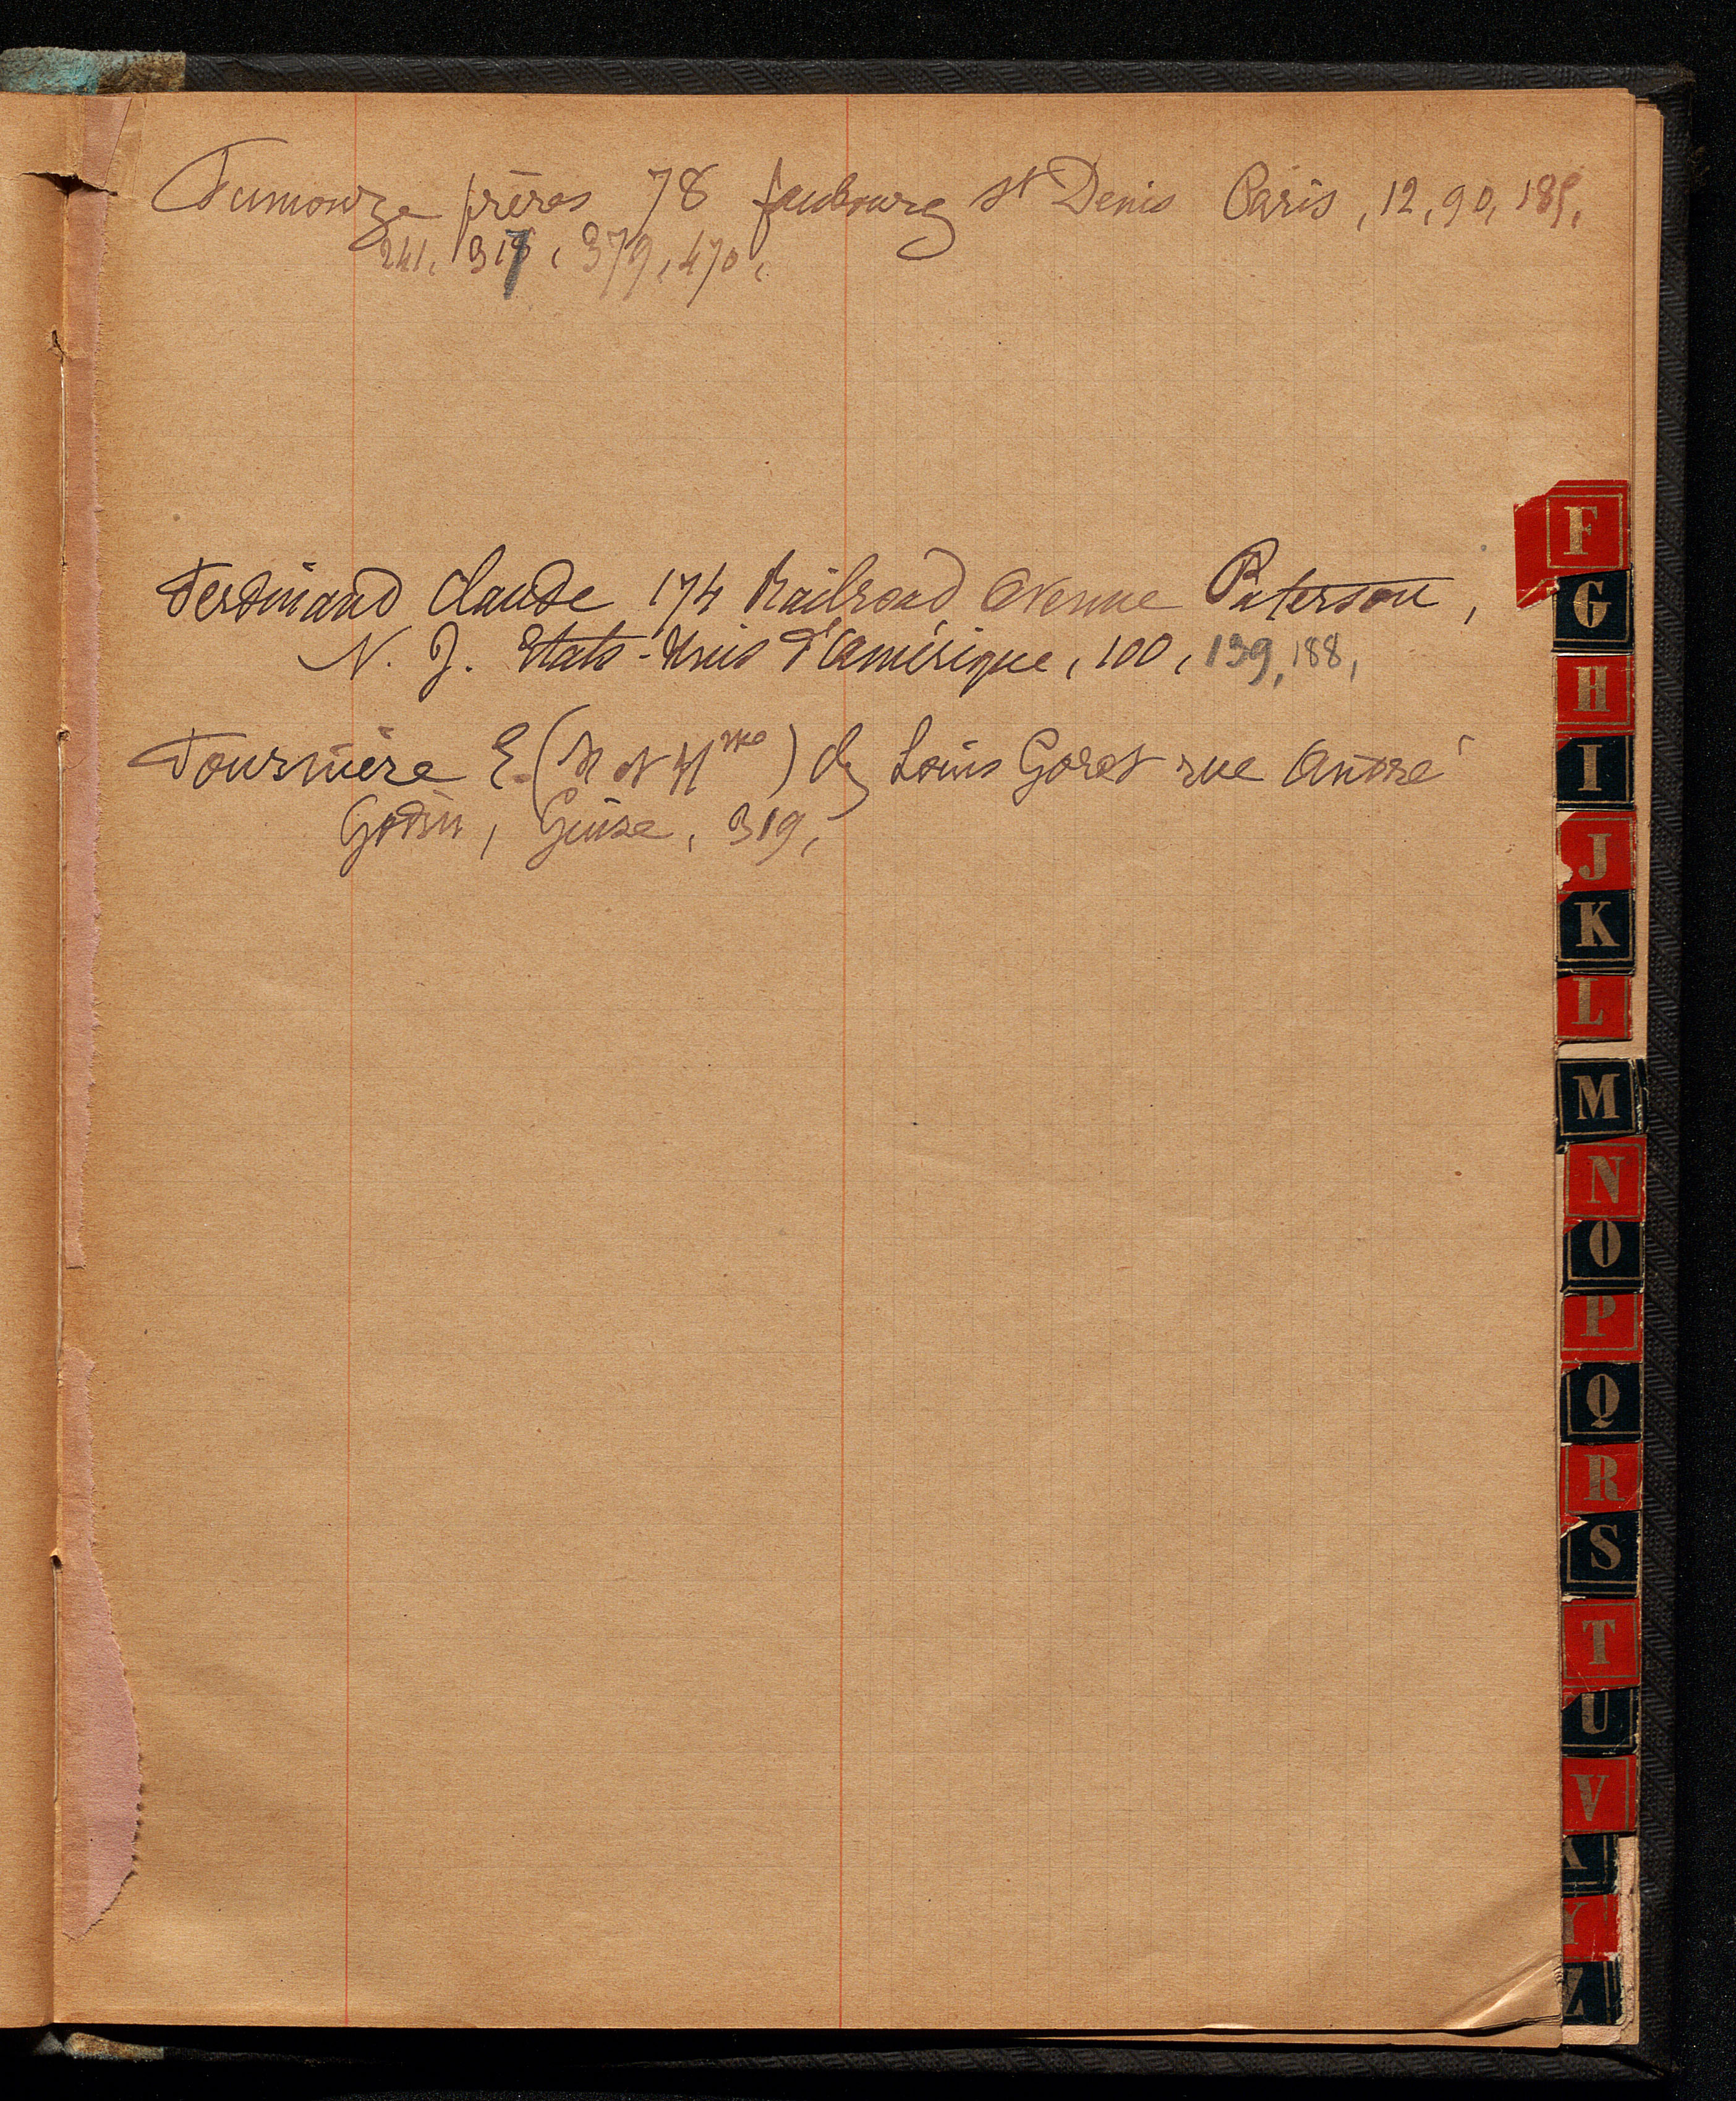 Fumouze frères 78 faubourg St Denis Paris, 12, 90, 185,
241, 317, 379, 470,
Ferdinand Claude 174 Railroad Avenue Paterson,
N. J. Etats-Unis d'Amérique, 100, 139, 188,
Fournière E. (M et Mme) chez Louis Goret rue André
Godin, Guise, 319,
F
G
H
I
J
K
L
M
N
O
P
Q
R
S
T
U
V
X
Y
Z